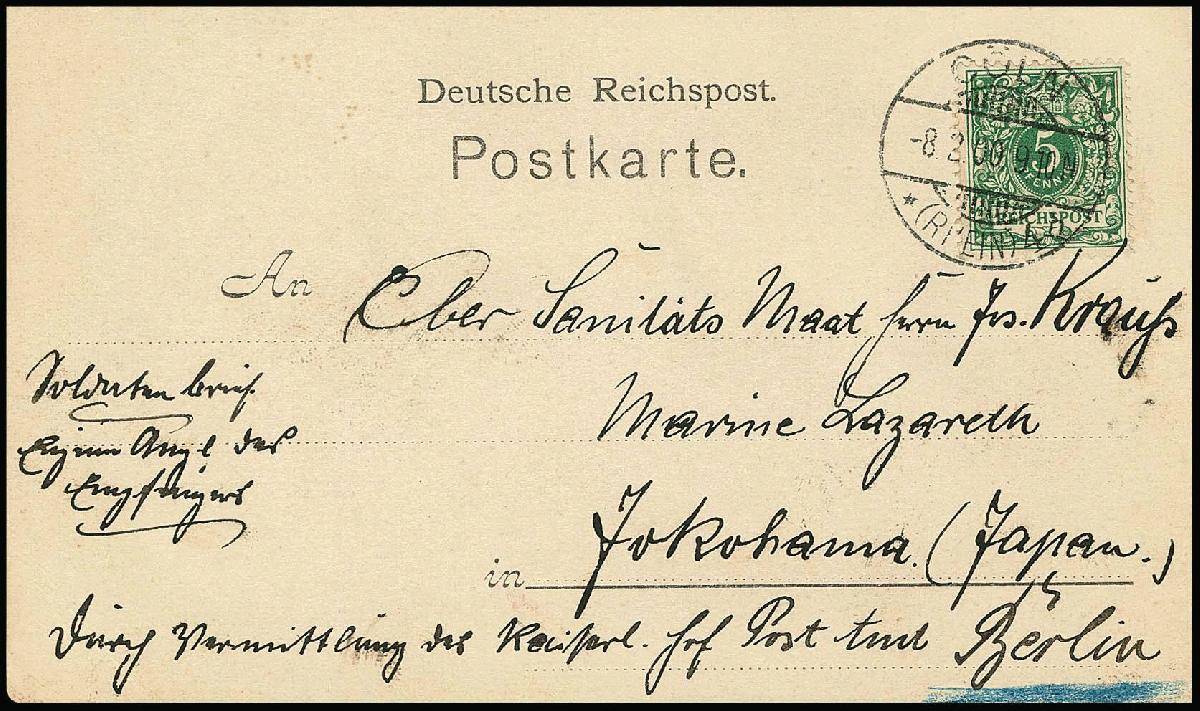 Deutsche Reichspost.
Postkarte.
CÖLN
-8.2.00.9-10.N
* (RHEIN)
5
PFENNIG
REICHSPOST
An Ober Sanitäts Maat Herrn Jos. Krauß
Marine Lazareth
in Jokohama. (Japan.)
Soldaten brief.
Eigene Angel. des
Empfängers
Durch Vermittlung des Kaiserl. Hof Post Amt Berlin